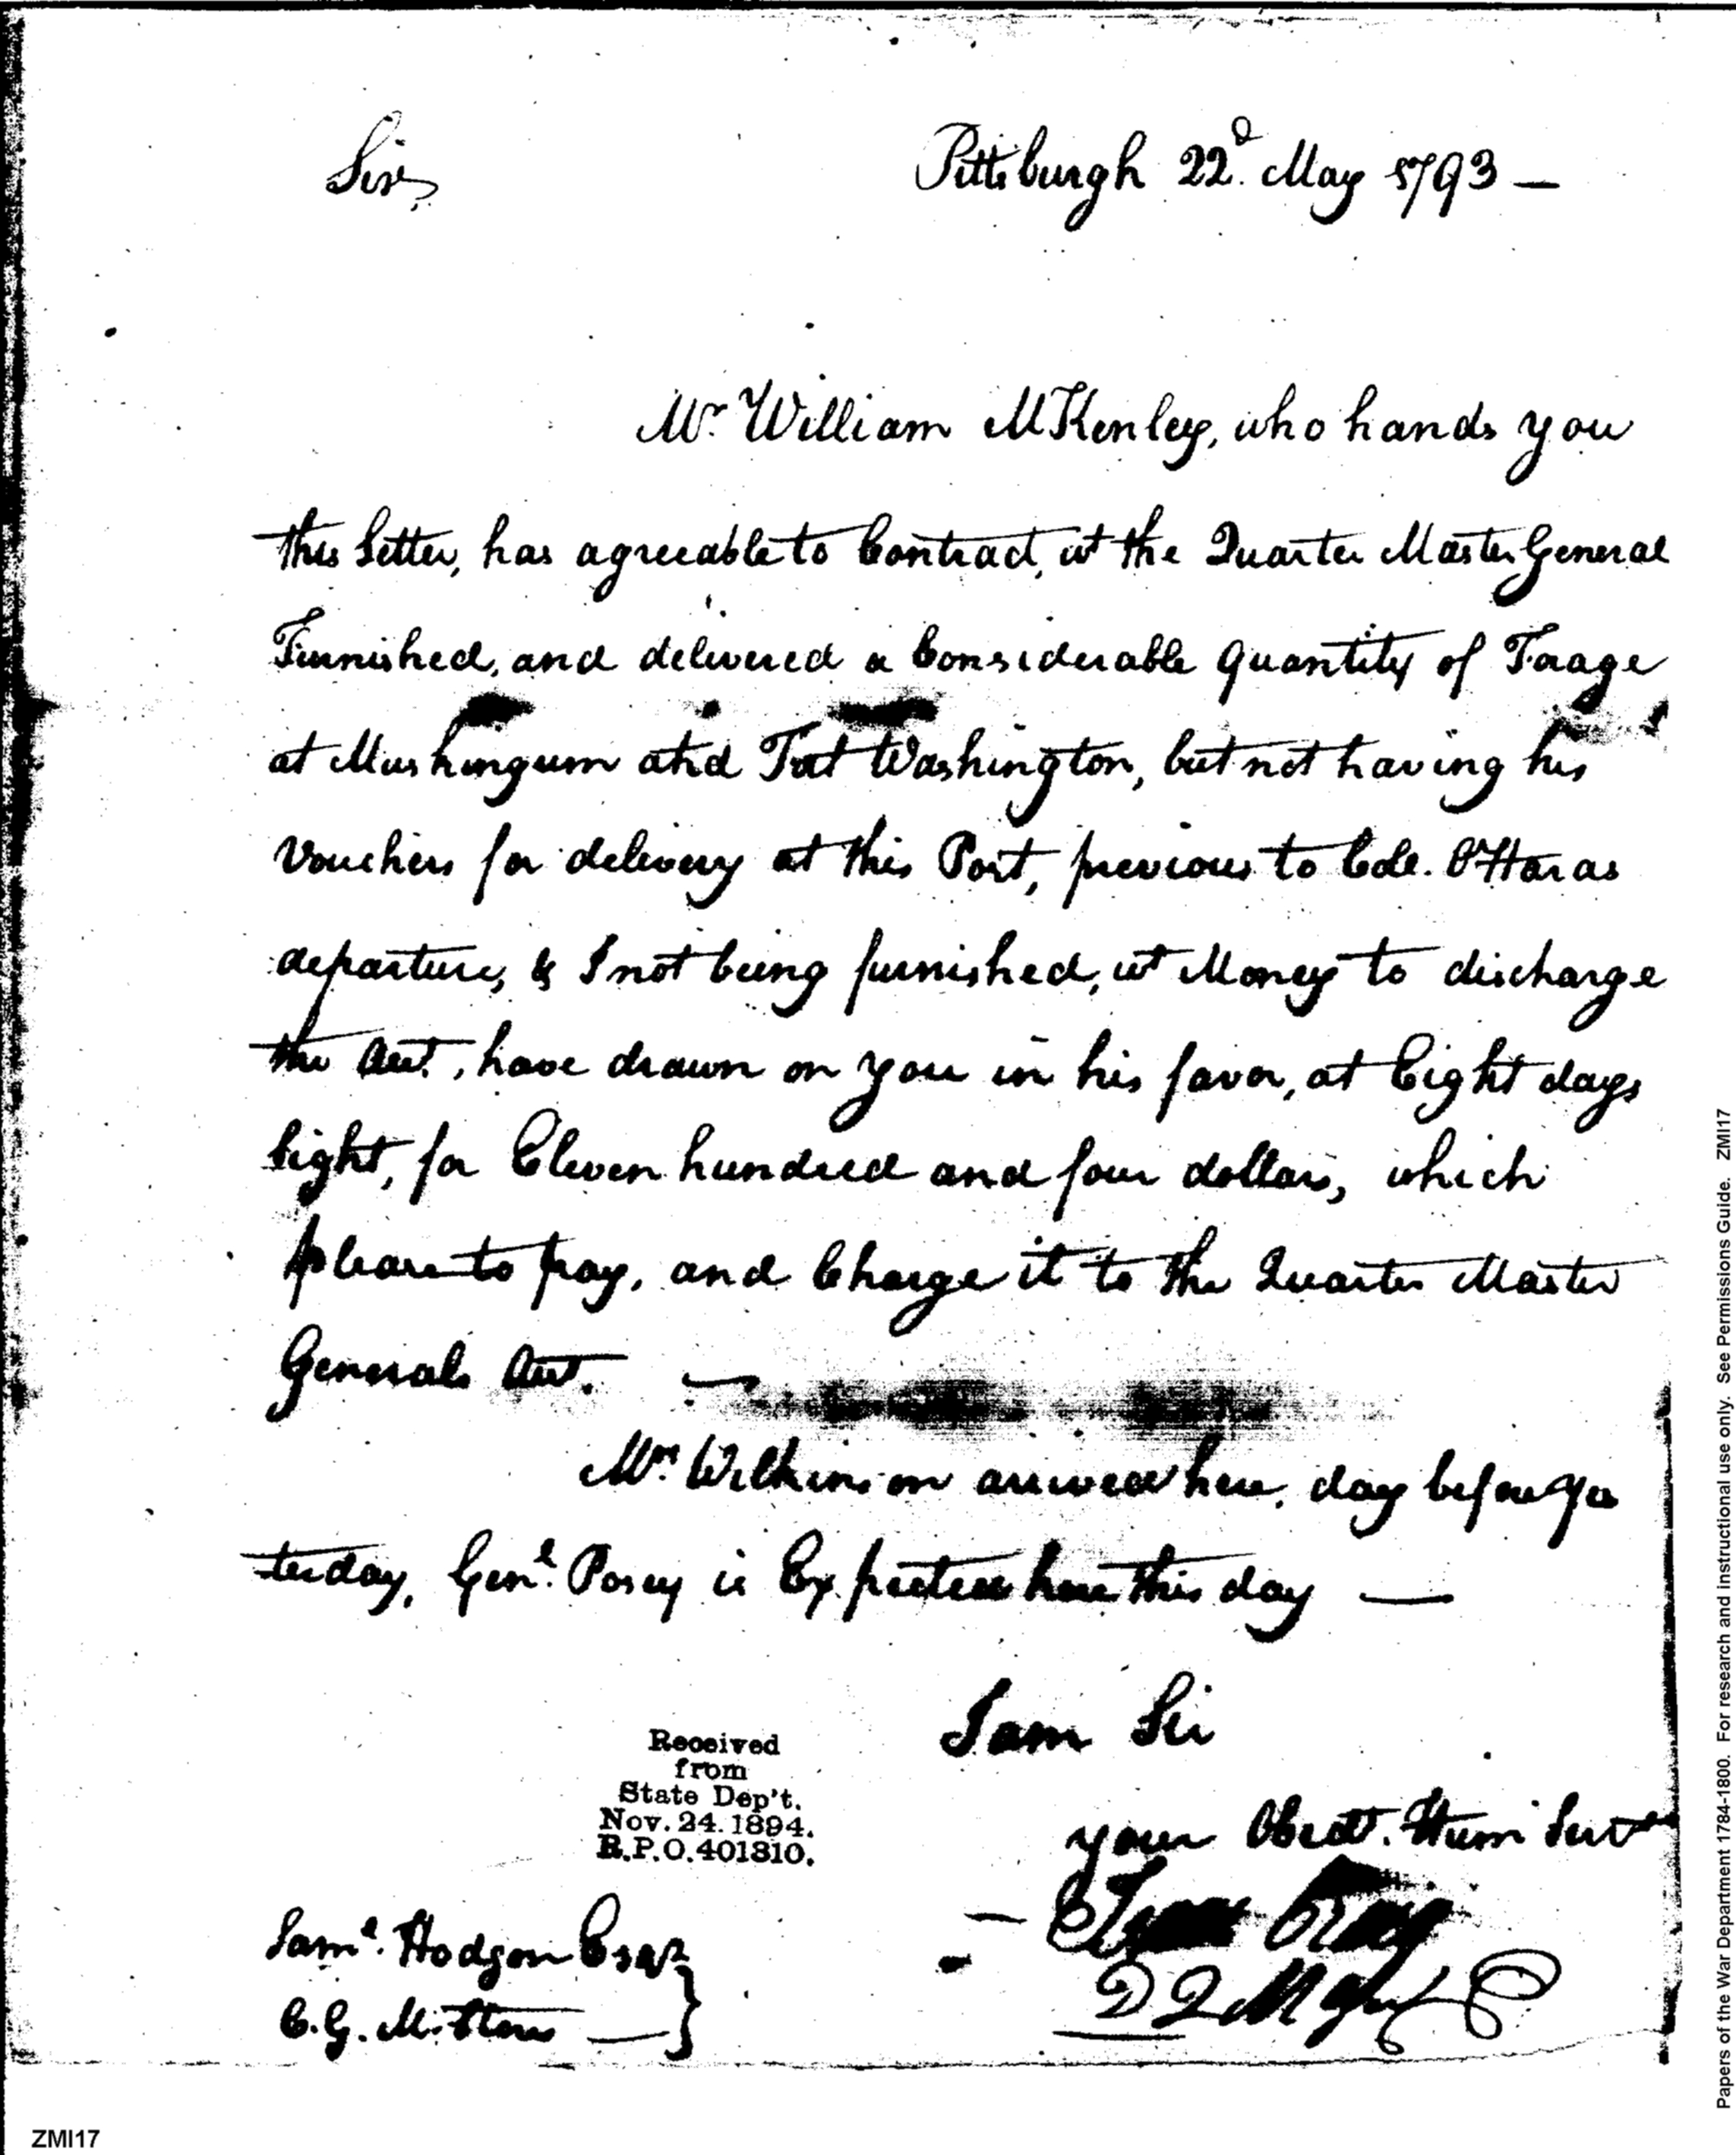 Sir,
Pittsburgh 22d. May 1793 —
Mr. William McKenley, who hands you
this Letter, has agreeable to Contract, wt the Quarter Master General
Furnished, and delivered a Considerable Quantity of Forage
at Muskingum and Fort Washington, but not having his
Vouchers for delivery at this Post, previous to Cole. OHaras
departure, & I not being furnished, wt Money to discharge
the Acct., have drawn on you in his favor, at Eight days
Sight, for Eleven hundred and four dollars, which
please to pay, and Charge it to the Quarter Master
Generals Acct. —
Mrs. Wilkinson arrived here, day before Yes
terday, Genl. Posey is Expected here this day —
I am Sir
your Obedt. Hum Servt
Isaac Craig
D Q M Genl
Received
from
State Dep't.
Nov. 24. 1894.
R.P.O. 401310.
Saml. Hodgdon Esqr
C. G. M. Stores —
ZMI17
Papers of the War Department 1784-1800. For research and instructional use only. See Permissions Guide. ZMI17